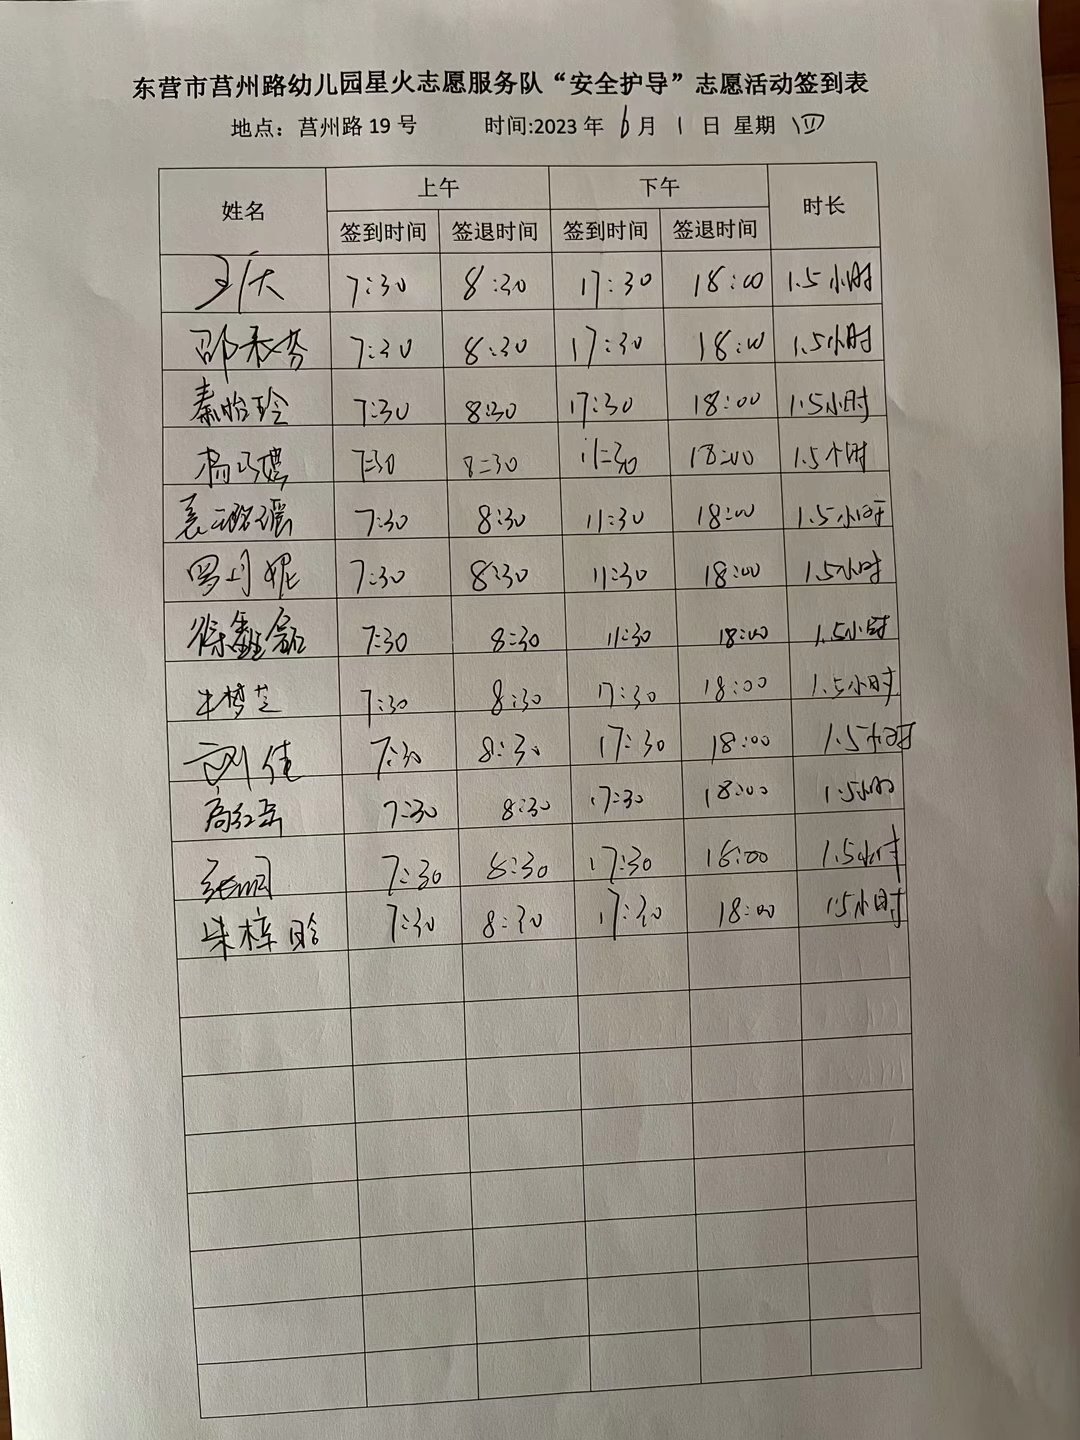 东营市莒州路幼儿园星火志愿服务队“安全护导”志愿活动签到表
地点：莒州路 19 号 时间:2023 年 6 月 1 日 星期 四
姓名 上午 下午 时长
签到时间 签退时间 签到时间 签退时间
7:30 8:30 17:30 18:00 1.5小时
7:30 8:30 17:30 18:00 1.5小时
秦怡玲 7:30 8:30 17:30 18:00 1.5小时
7:30 8:30 11:30 18:00 1.5小时
7:30 8:30 11:30 18:00 1.5小时
7:30 8:30 11:30 18:00 1.5小时
徐鑫磊 7:30 8:30 11:30 18:00 1.5小时
牛梦芝 7:30 8:30 17:30 18:00 1.5小时
刘佳 7:30 8:30 17:30 18:00 1.5小时
高红岳 7:30 8:30 17:30 18:00 1.5小时
7:30 8:30 17:30 18:00 1.5小时
朱梓晗 7:30 8:30 17:30 18:00 1.5小时